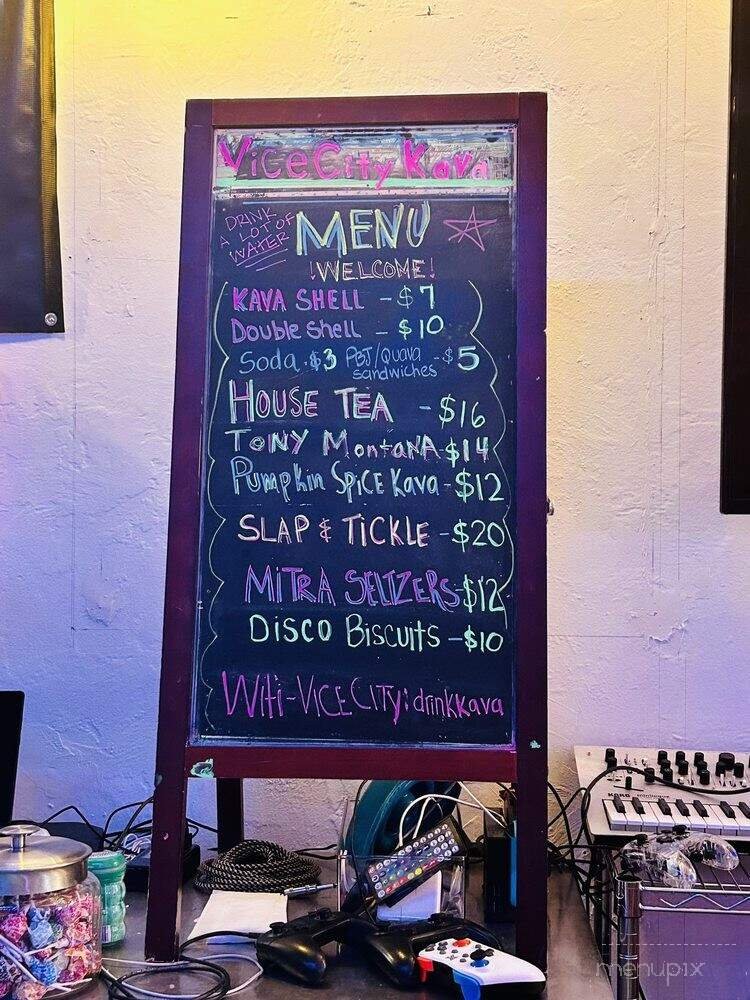 Vice City Kava
DRINK
A LOT OF
WATER
MENU
!WELCOME!
KAVA SHELL - $7
Double Shell - $10
Soda - $3 PBJ/Quava sandwiches - $5
HOUSE TEA - $16
TONY MontaNA - $14
Pumpkin SpicE Kava - $12
SLAP & TICKLE - $20
MITRA SELTZERS - $12
DISCO BISCUITS - $10
Wifi - VICE CITY: drinkkava
KORG minilogue
menupix